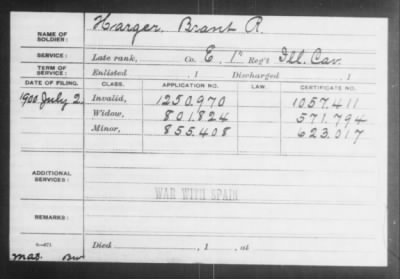 NAME OF SOLDIER: Harger, Brant R.
SERVICE: Late rank, Co. E, 1st Reg't Ill. Cav.
TERM OF SERVICE: Enlisted , 1 Discharged , 1
DATE OF FILING. CLASS. APPLICATION NO. LAW. CERTIFICATE NO.
1900 July 2 Invalid, 1250.970 1057.411
Widow, 801.824 571.794
Minor, 855.408 623.017
ADDITIONAL SERVICES:
WAR WITH SPAIN
REMARKS:
Died , 1 , at